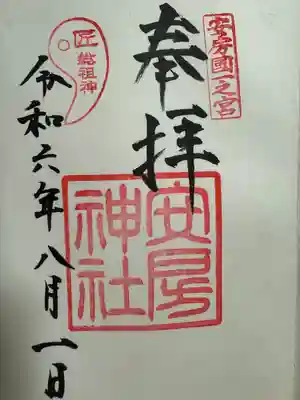 安房國一之宮
奉拝
安房
神社
匠
総祖神
令和六年八月一日